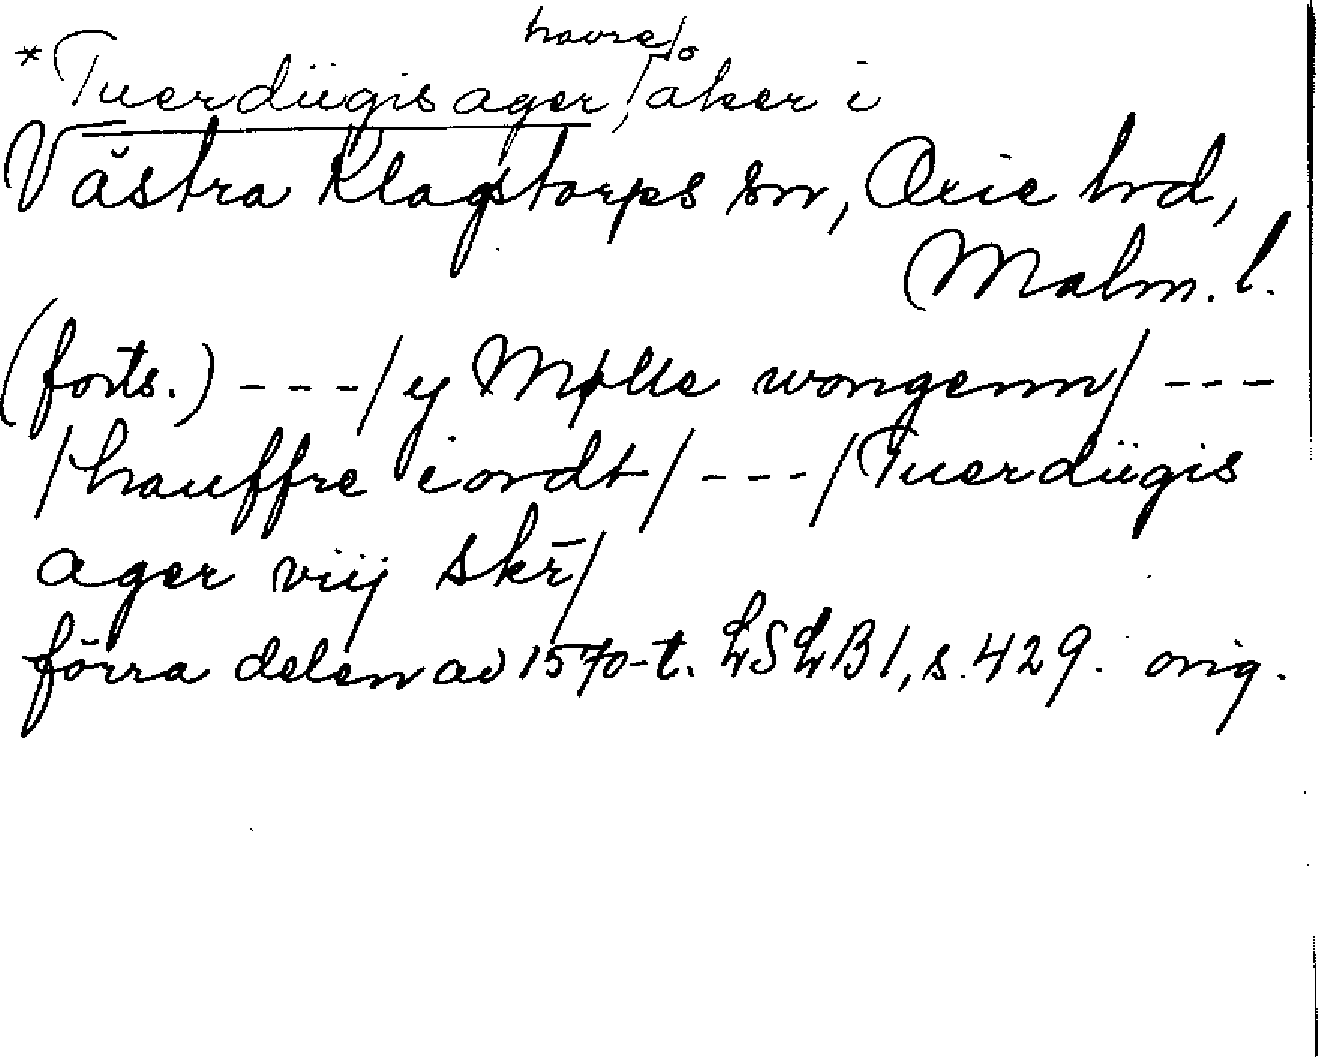 havre/
*Tuerdügis ager, /åker i
Västra Klagstorps sn, Oxie hd,
Malm. l.
(forts.) ---/ y Mølle wongenn/ ---
/hauffre iordt/ ---/Tuerdügis
ager viij skr̄/
förra delen av 1570-t. LSLB 1, s. 429. orig.